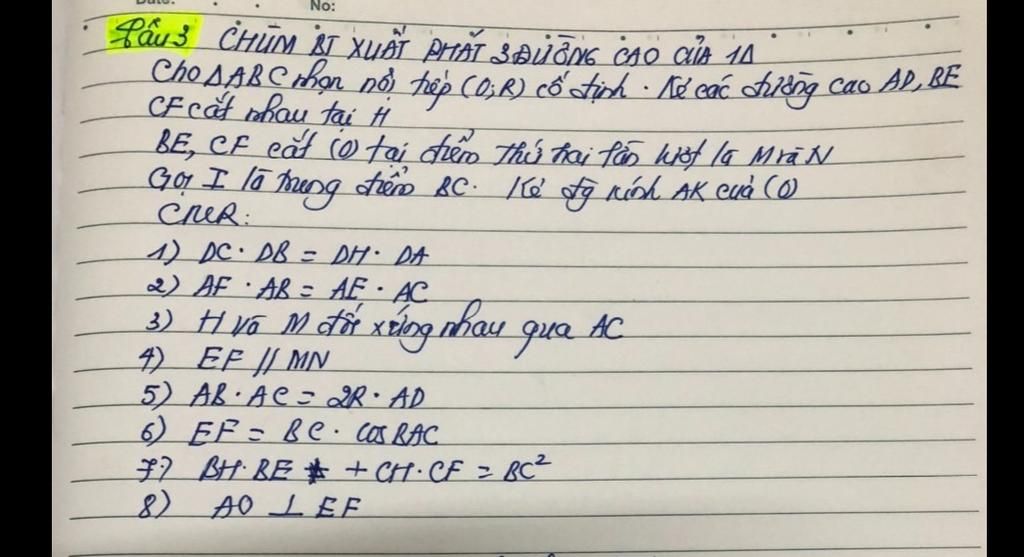 No:
Câu 3 CHÙM BT XUẤT PHÁT 3 ĐƯỜNG CAO CỦA 1Δ
Cho ΔABC nhọn nội tiếp (O;R) cố định. Kẻ các đường cao AD, BE
CF cắt nhau tại H
BE, CF cắt (O) tại điểm thứ hai lần lượt là M và N
Gọi I là trung điểm BC. Kẻ đg kính AK của (O)
CMR:
1) DC · DB = DH · DA
2) AF · AB = AE · AC
3) H và M đối xứng nhau qua AC
4) EF // MN
5) AB · AC = 2R · AD
6) EF = BC · cos BAC
7) BH · BE + CH · CF = BC²
8) AO ⊥ EF